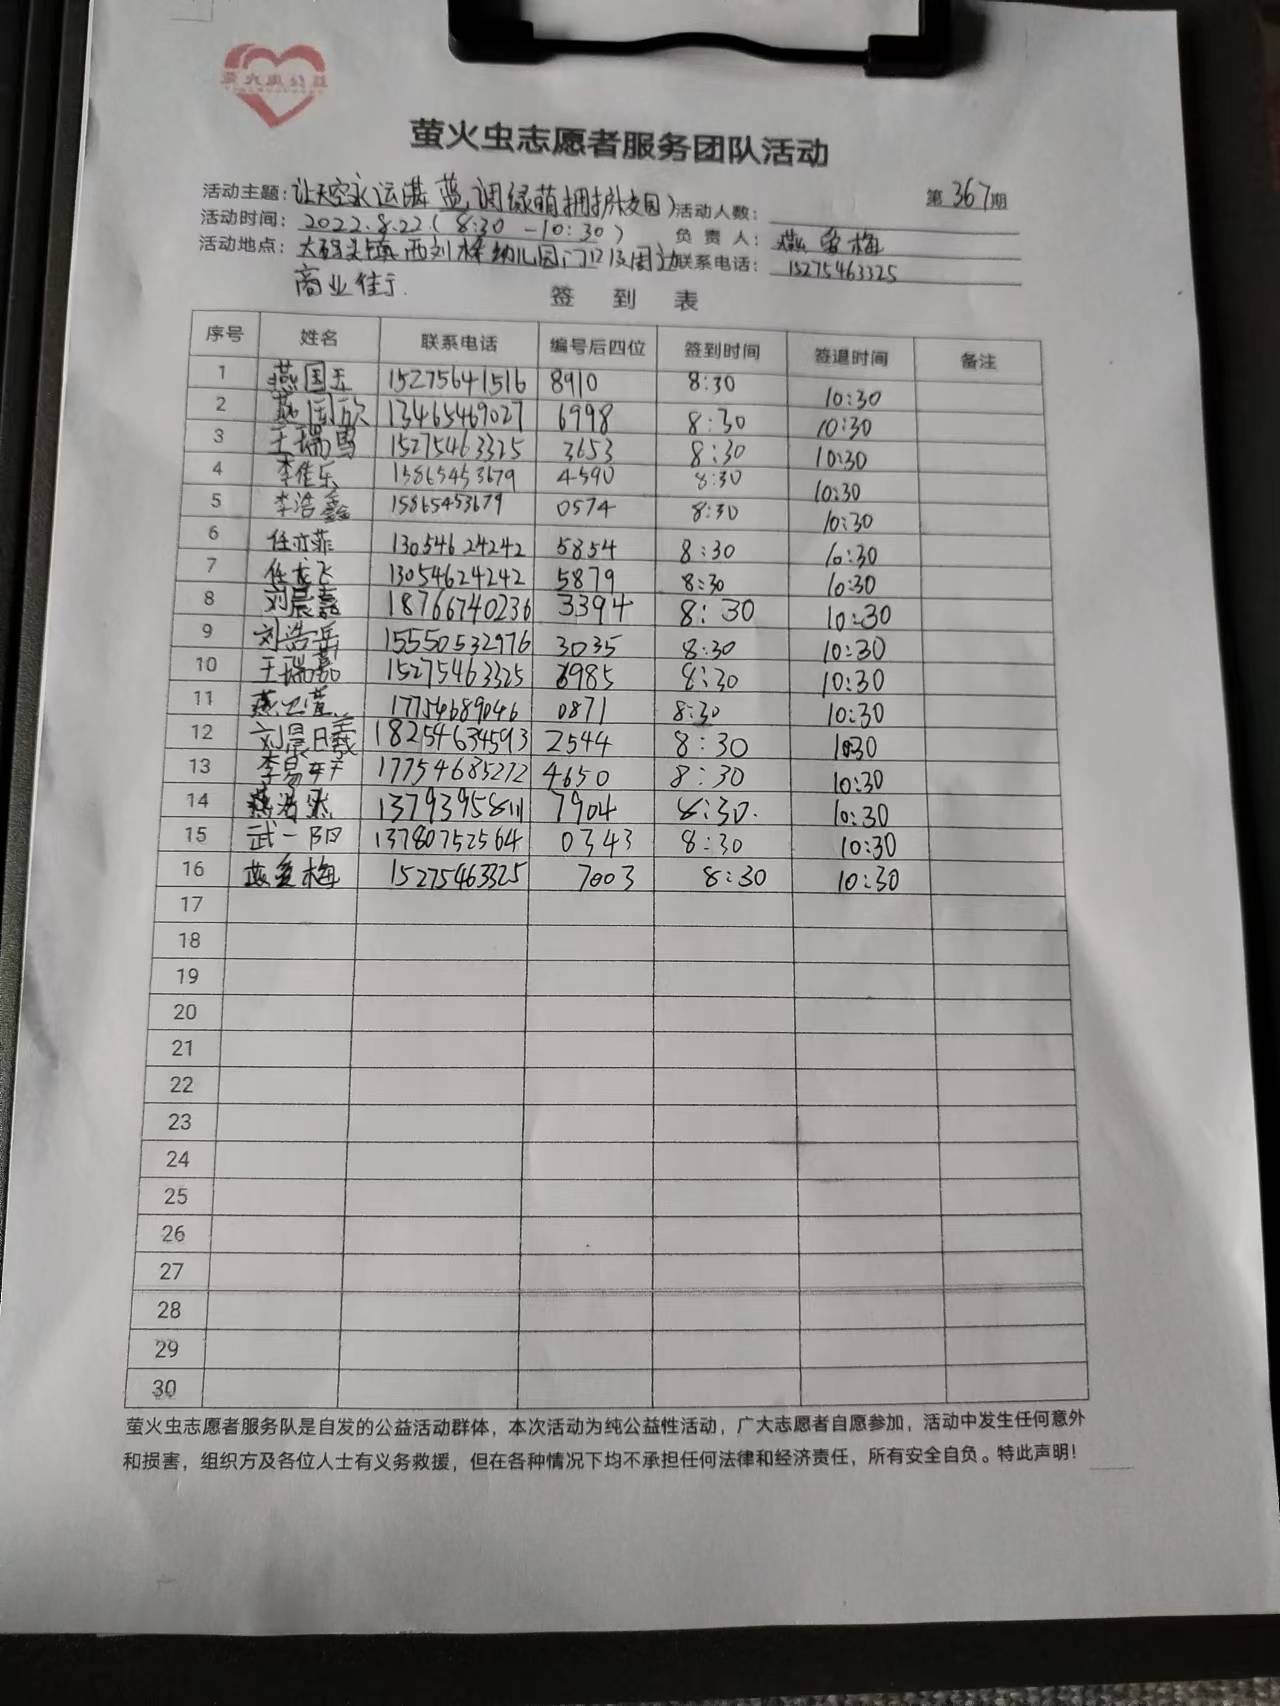 萤火虫志愿者服务团队活动
第367期
活动主题：让天空永远湛蓝，调绿萌拥护校园） 活动人数：
活动时间：2022.8.22（8:30-10:30） 负责人：燕爱梅
活动地点：大码头镇西刘桥幼儿园门口及周边 联系电话：15275463325
商业街
签到表
序号 姓名 联系电话 编号后四位 签到时间 签退时间 备注
1 燕国玉 15275641516 8910 8:30 10:30
2 燕国欣 13465469027 6998 8:30 10:30
3 王瑞雪 15275463325 3653 8:30 10:30
4 李佳乐 15865453679 4590 8:30 10:30
5 李浩鑫 15865453679 0574 8:30 10:30
6 任亦菲 13054624242 5854 8:30 10:30
7 任龙飞 13054624242 5879 8:30 10:30
8 刘晨嘉 18766740236 3394 8:30 10:30
9 刘浩岳 15550532976 3035 8:30 10:30
10 王瑞嘉 15275463325 6985 8:30 10:30
11 17754689046 0871 8:30 10:30
12 刘晨曦 18254634593 2544 8:30 10:30
13 李易轩 17754685272 4650 8:30 10:30
14 燕浩然 13793958111 7904 8:30. 10:30
15 武一阳 13780752564 0343 8:30 10:30
16 燕爱梅 15275463325 7003 8:30 10:30
17
18
19
20
21
22
23
24
25
26
27
28
29
30
萤火虫志愿者服务队是自发的公益活动群体，本次活动为纯公益性活动，广大志愿者自愿参加，活动中发生任何意外
和损害，组织方及各位人士有义务救援，但在各种情况下均不承担任何法律和经济责任，所有安全自负。特此声明！